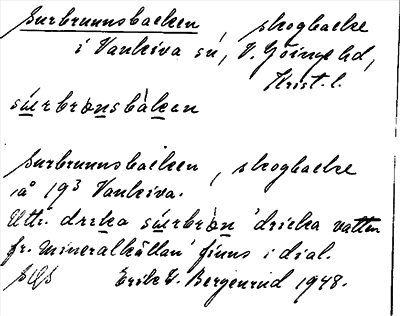 Surbrunnsbacken, skogbacke
i Vankiva sn, V. Göinge hd,
Krist. l.
sürbrønsbàken
Surbrunnsbacken, skogbacke
på 19³ Vankiva.
Uttr. drɛka sürbrøn 'dricka vatten
fr. mineralkällan' finns i dial.
Erik G. Bergenrud 1948.